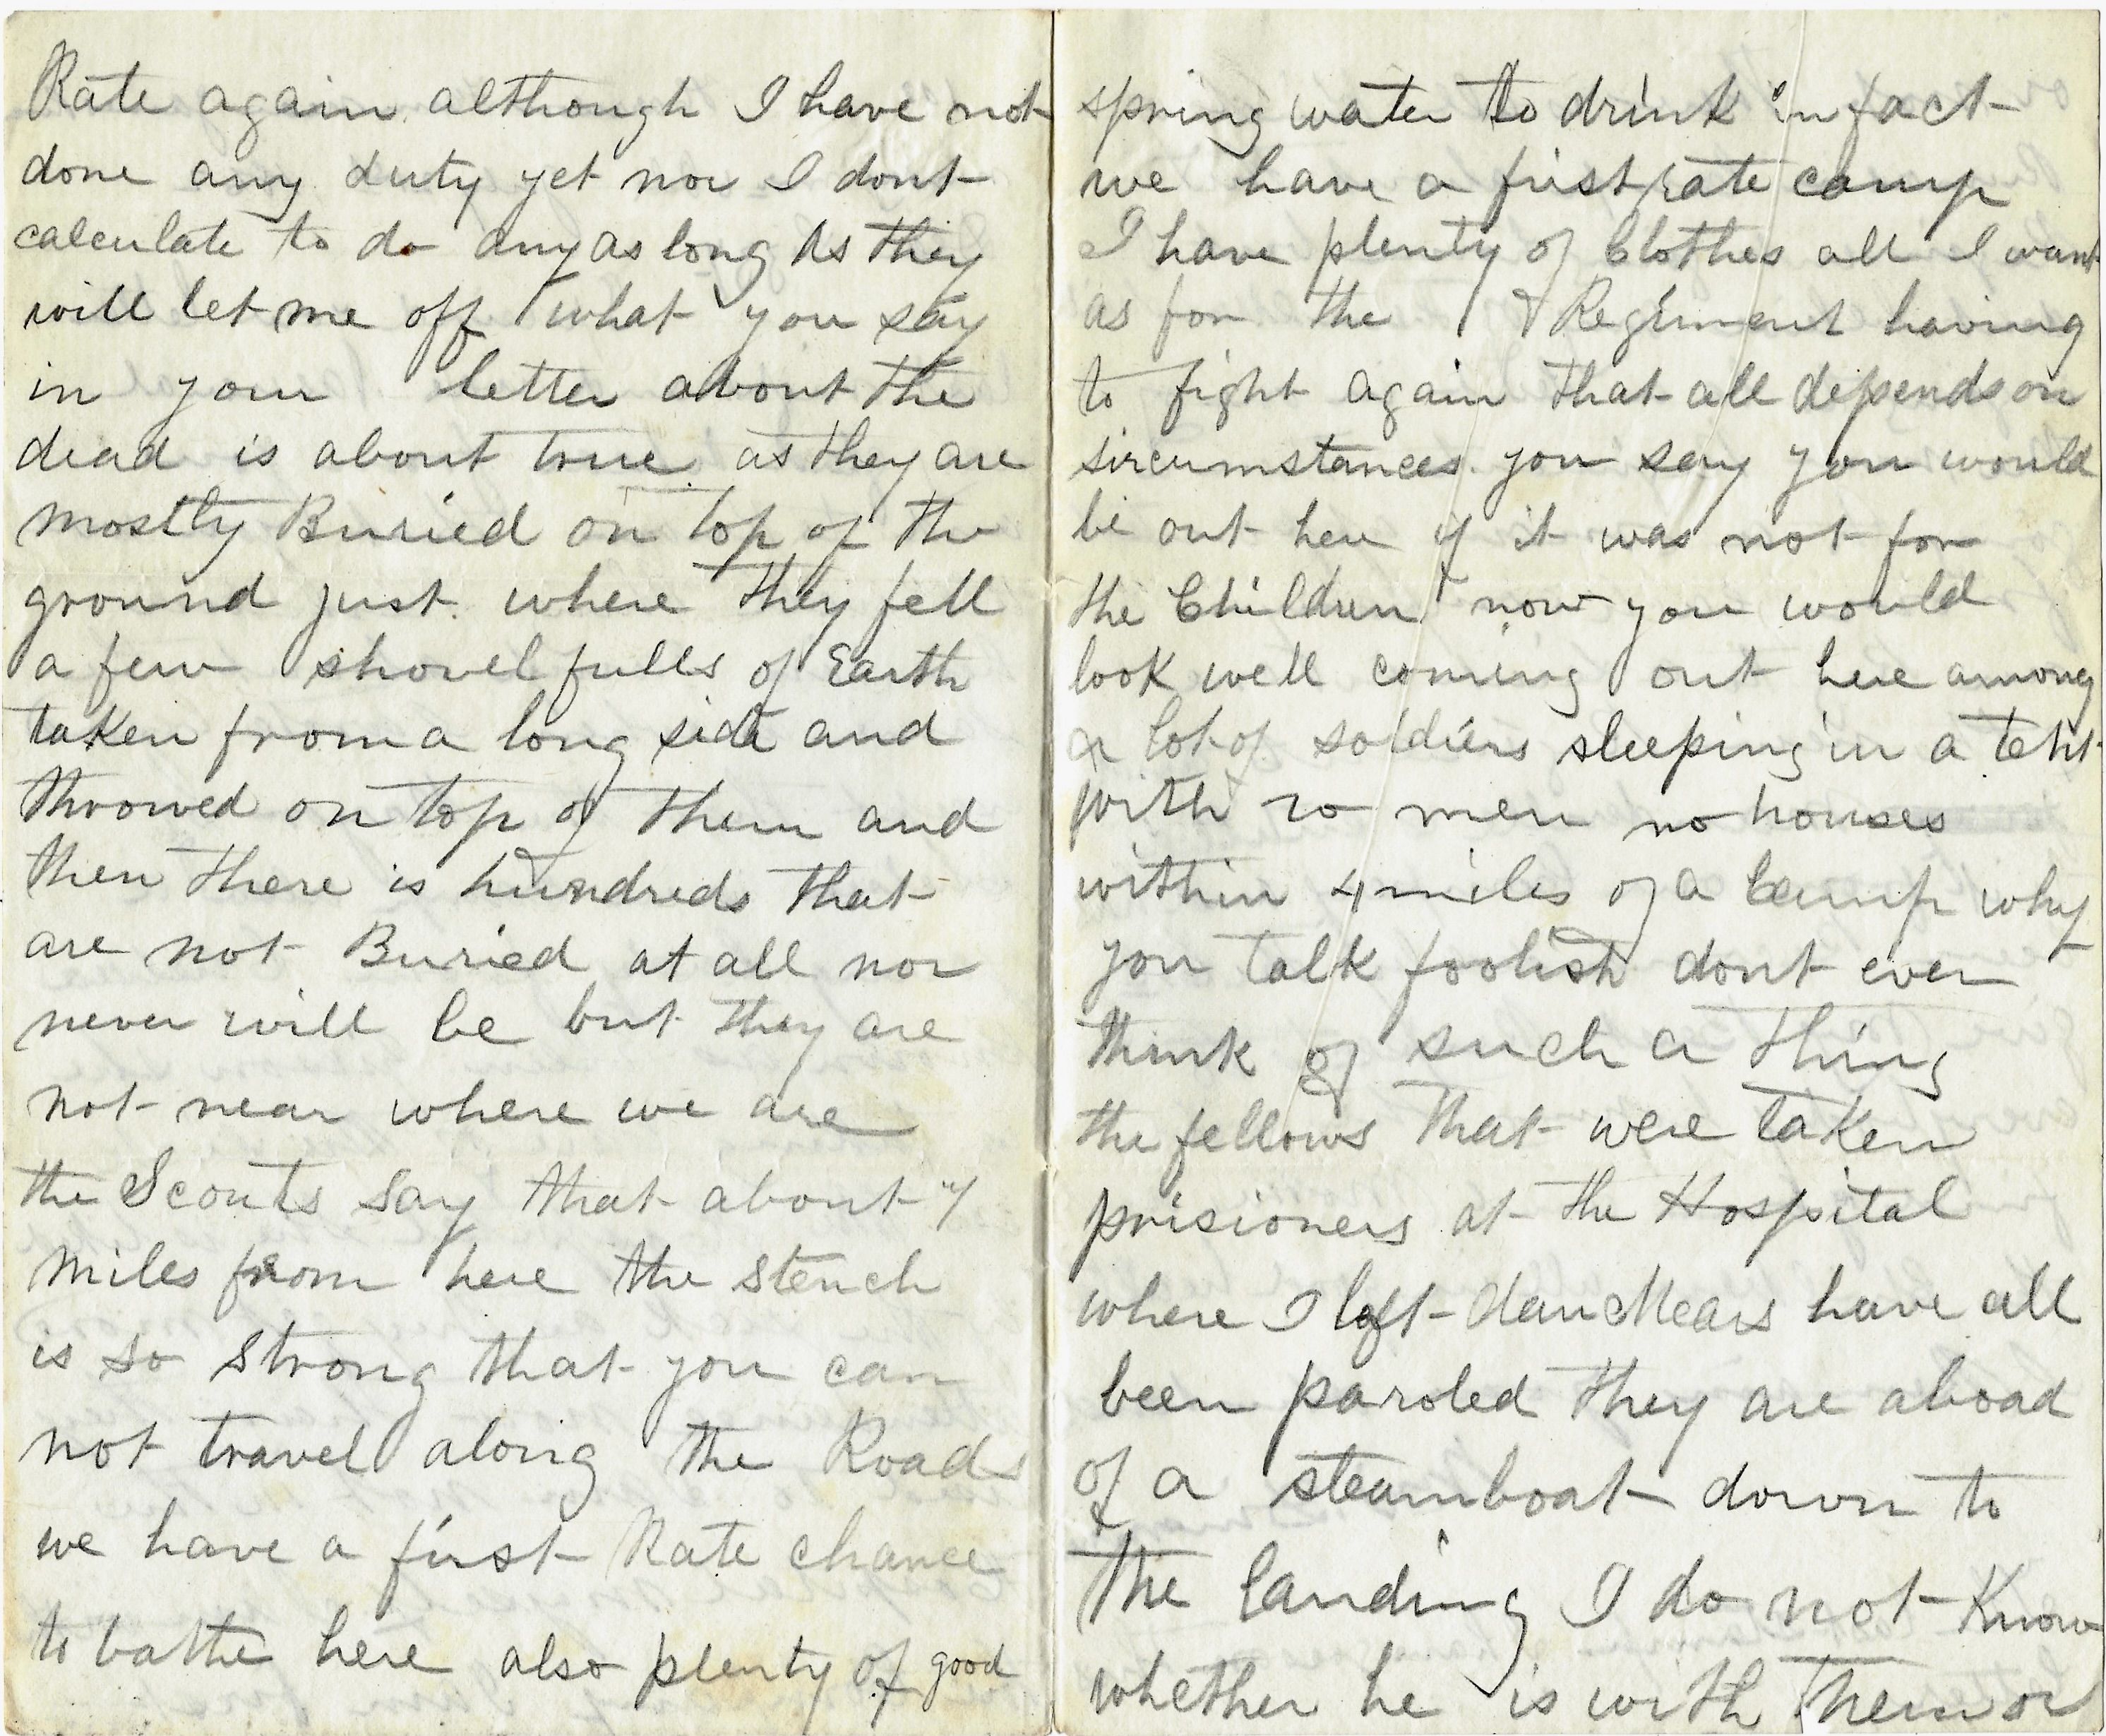 Rate again although I have not
done any duty yet nor I dont
calculate to do any as long as they
will let me off what you say
in your letter about the
dead is about true as they are
mostly Buried on top of the
ground just where they fell
a few shovel fulls of Earth
taken from a long side and
throwed on top of them and
then there is hundreds that
are not Buried at all nor
never will be but they are
not near where we are
the Scouts say that about 4
miles from here the stench
is so strong that you can
not travel along the Roads
we have a first Rate chance
to bathe here also plenty of good
spring water to drink in fact
we have a first rate camp
I have plenty of Clothes all I want
as for the Regiment having
to fight again that all depends on
sircumstances you say you would
be out here if it was not for
the Children now you would
look well coming out here among
a lot of soldiers sleeping in a tent
with 20 men no houses
within 4 miles of a Camp why
you talk foolish dont ever
think of such a thing
the fellows that were taken
prisioners at the Hospital
where I left dan Mears have all
been paroled they are aboad
of a steamboat down to
the landing I do not Know
whether he is with them or